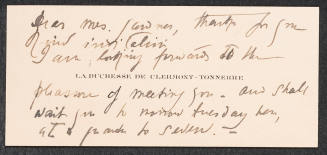 Dear Mrs. Gardner, thanks for your
kind invitation
I am looking forwards to the
LA DUCHESSE DE CLERMONT-TONNERRE
pleasure of meeting you - and shall
wait you to morrow tuesday here,
at a quarter to seven. -